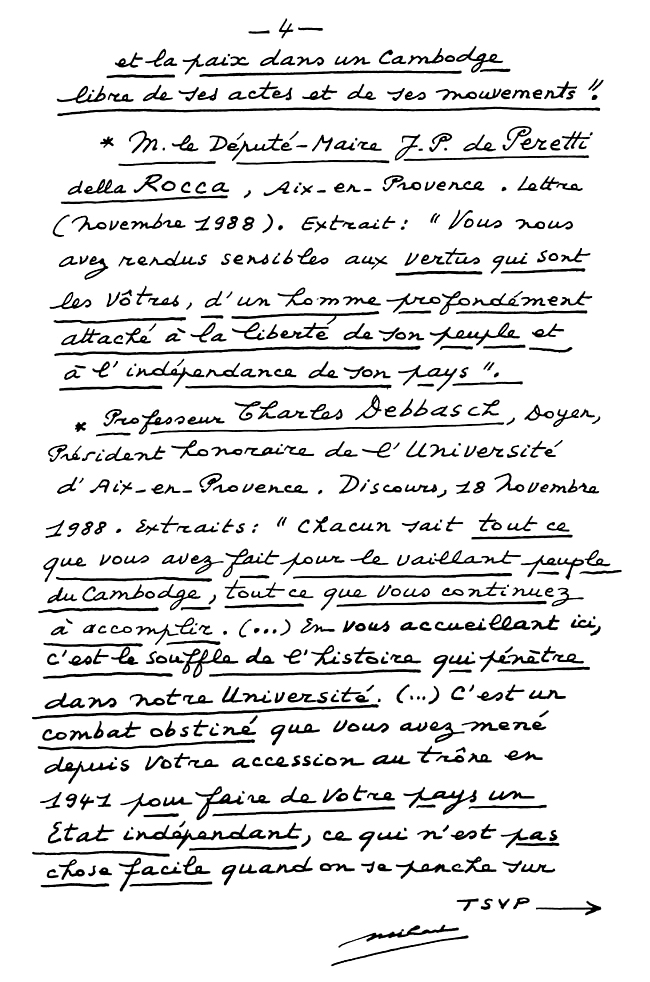 — 4 —
et la paix dans un Cambodge
libre de ses actes et de ses mouvements ".
* M. le Député-Maire J. P. de Peretti
della Rocca, Aix-en-Provence. Lettre
(novembre 1988). Extrait : " Vous nous
avez rendus sensibles aux vertus qui sont
les vôtres, d'un homme profondément
attaché à la liberté de son peuple et
à l'indépendance de son pays ".
* Professeur Charles Debbasch, Doyen,
Président honoraire de l'Université
d'Aix-en-Provence. Discours, 18 Novembre
1988. Extraits : " Chacun sait tout ce
que vous avez fait pour le vaillant peuple
du Cambodge, tout ce que vous continuez
à accomplir. (...) En vous accueillant ici,
c'est le souffle de l'histoire qui pénètre
dans notre Université. (...) C'est un
combat obstiné que vous avez mené
depuis votre accession au trône en
1941 pour faire de votre pays un
Etat indépendant, ce qui n'est pas
chose facile quand on se penche sur
TSVP →